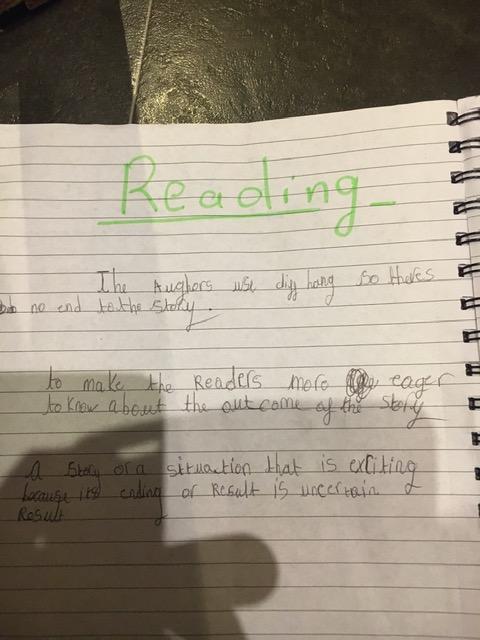 Reading
The Aughors use diff hang so theres
no end to the story.
to make the Readers more eager
to know about the out come of the story
A story or a situation that is exciting
because its ending or Result is uncertain
Result